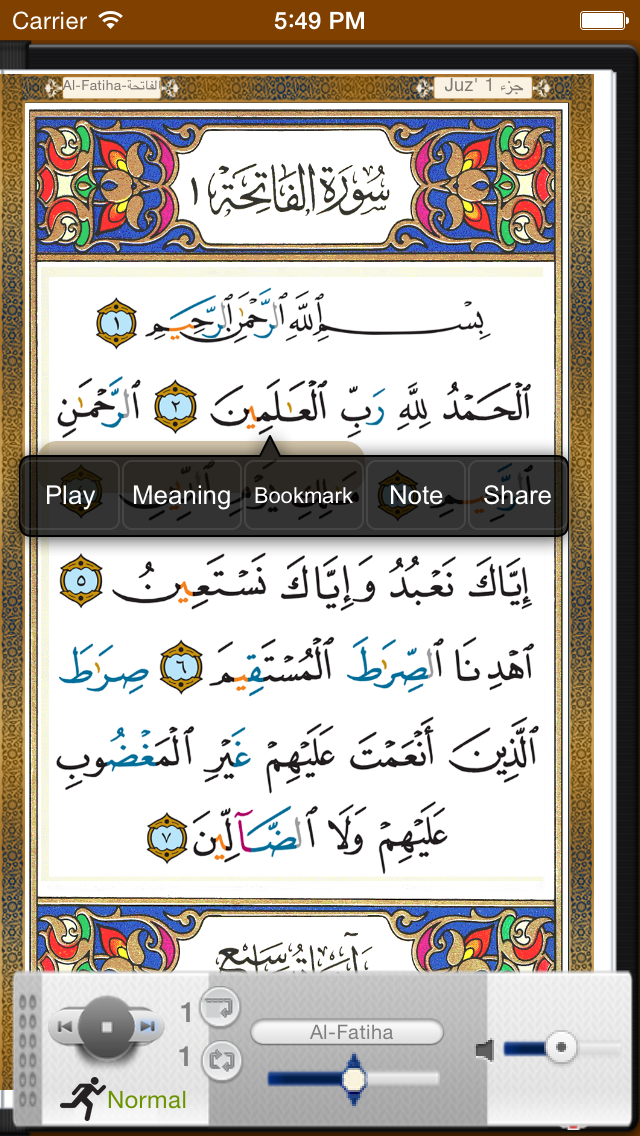 Carrier 5:49 PM
Al-Fatiha-الفاتحة Juz' 1 جزء
سُورَةُ الفَاتِحَةِ ١
بِسْمِ ٱللَّهِ ٱلرَّحْمَٰنِ ٱلرَّحِيمِ ١
ٱلْحَمْدُ لِلَّهِ رَبِّ ٱلْعَٰلَمِينَ ٢ ٱلرَّحْمَٰنِ
Play Meaning Bookmark Note Share
إِيَّاكَ نَعْبُدُ وَإِيَّاكَ نَسْتَعِينُ ٥
ٱهْدِنَا ٱلصِّرَٰطَ ٱلْمُسْتَقِيمَ ٦ صِرَٰطَ
ٱلَّذِينَ أَنْعَمْتَ عَلَيْهِمْ غَيْرِ ٱلْمَغْضُوبِ
عَلَيْهِمْ وَلَا ٱلضَّآلِّينَ ٧
1
Al-Fatiha
1
Normal